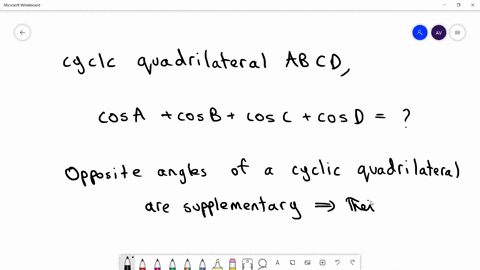 Microsoft Whiteboard
AV
cyclc quadrilateral ABCD,
cos A + cos B + cos C + cos D = ?
Opposite angles of a cyclic quadrilateral
are supplementary ⇒